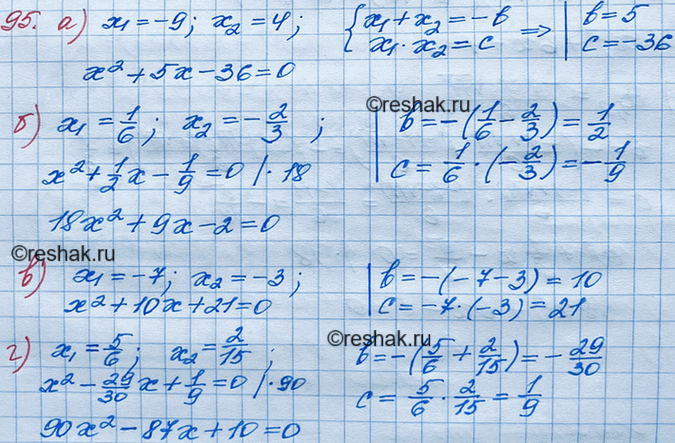 95. а) x₁ = -9; x₂ = 4; { x₁ + x₂ = -b ⇒ | b = 5
x₁ · x₂ = c | c = -36
x² + 5x - 36 = 0
©reshak.ru
б) x₁ = 1/6; x₂ = -2/3; | b = -(1/6 - 2/3) = 1/2
x² + 1/2 x - 1/9 = 0 | · 18 | c = 1/6 · (-2/3) = -1/9
18x² + 9x - 2 = 0
©reshak.ru
в) x₁ = -7; x₂ = -3; | b = -(-7 - 3) = 10
x² + 10x + 21 = 0 | c = -7 · (-3) = 21
©reshak.ru
г) x₁ = 5/6; x₂ = 2/15; b = -(5/6 + 2/15) = -29/30
x² - 29/30 x + 1/9 = 0 | · 90 c = 5/6 · 2/15 = 1/9
90x² - 87x + 10 = 0